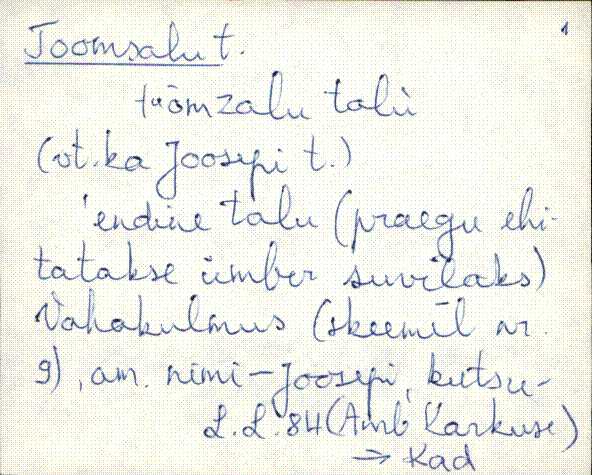 Toomsalu t. 1
tuòmzalu talù
(vt. ka Joosepi t.)
'endine talu (praegu ehi-
tatakse ümber suvilaks)
Vahakulmus (skeemil nr.
9), am. nimi - Joosepi, kutsu-
L.L.'84 (Amb Karkuse)
→ Kad